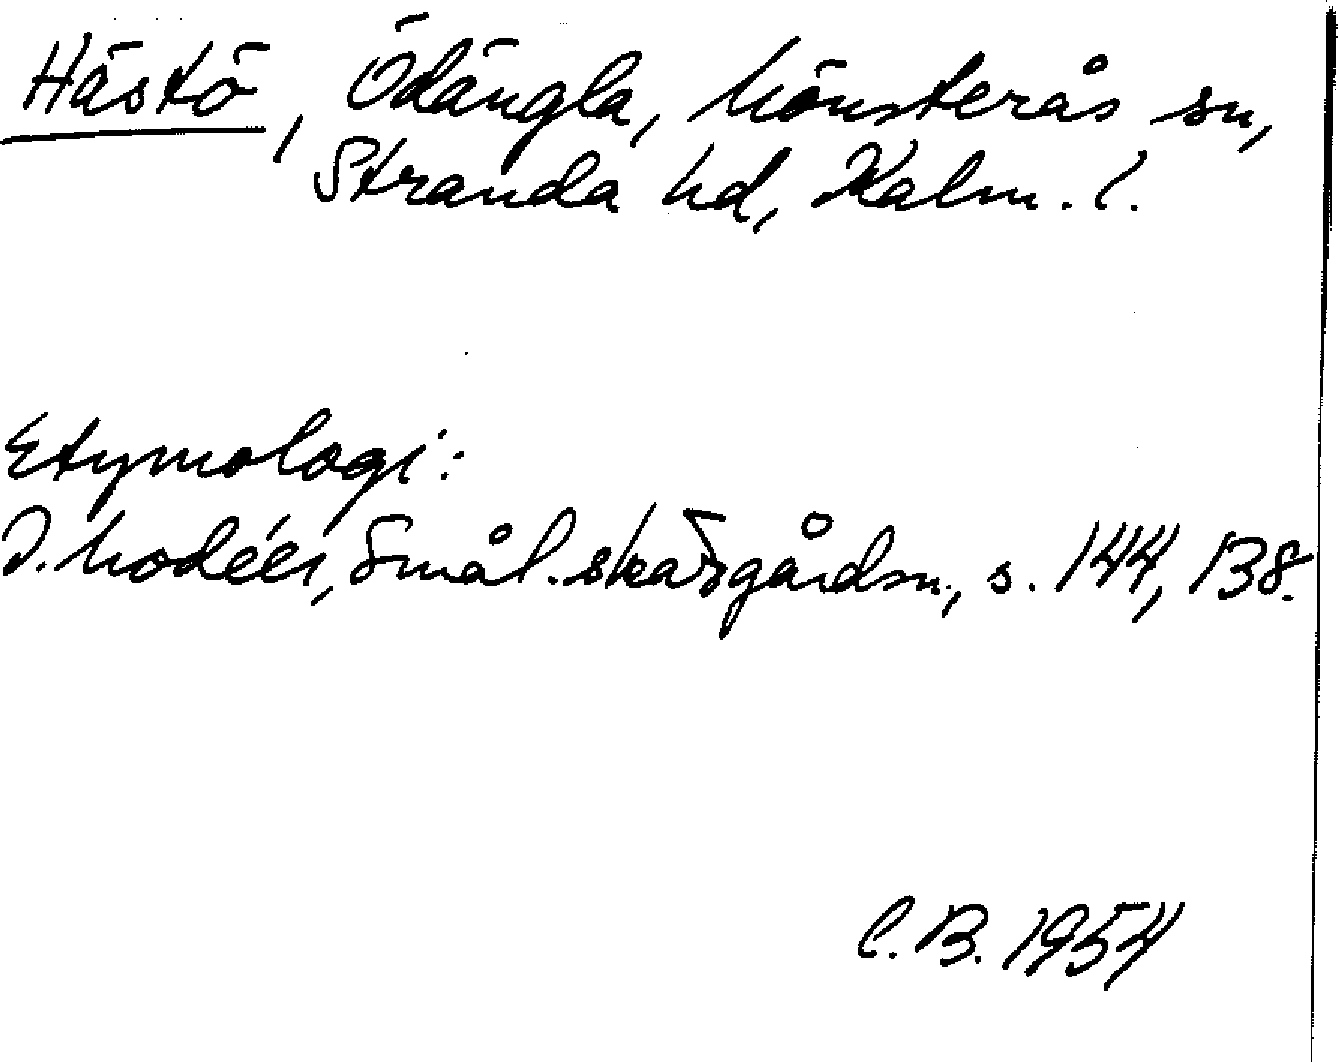 Hästö, Ödängla, Mönsterås sn,
Stranda hd, Kalm. l.
Etymologi:
I. Modéer, Smål. skärgårdsn., s. 144, 138.
C.B. 1954